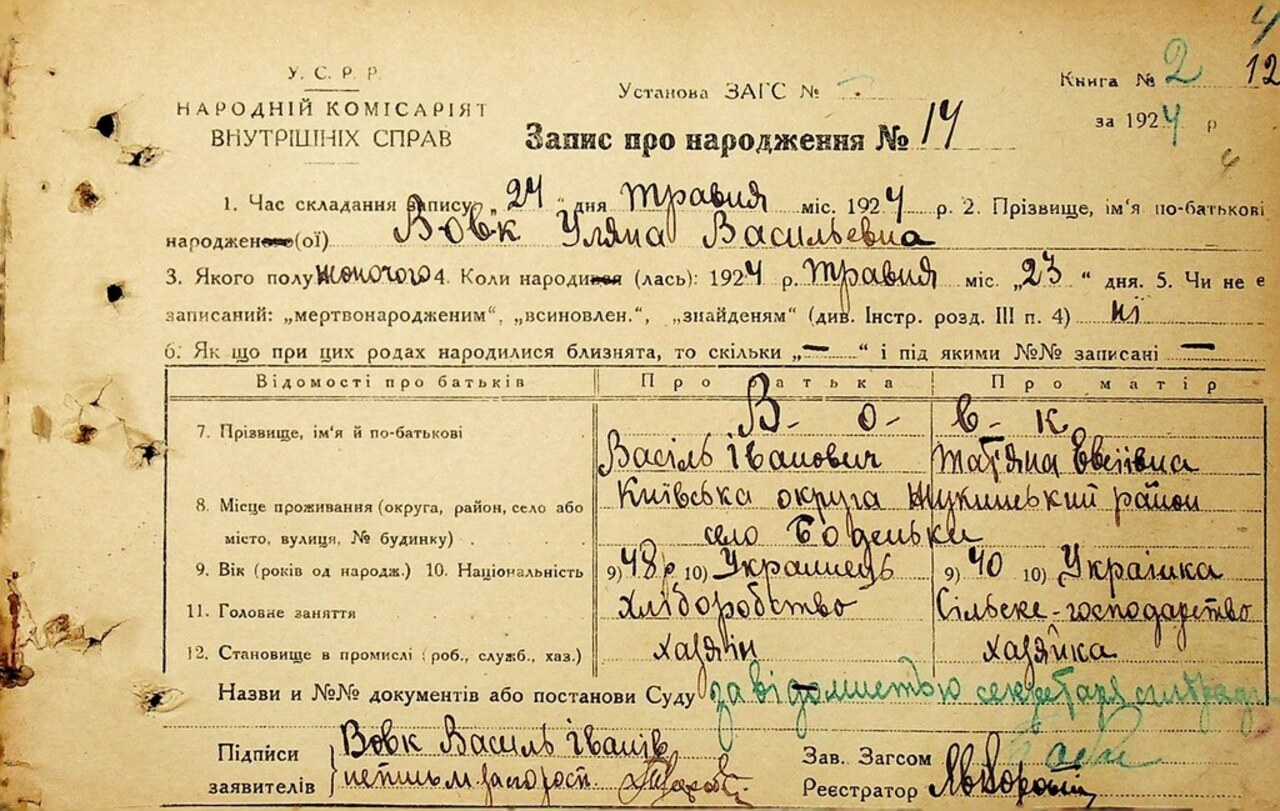 4
У. С. Р. Р.
НАРОДНІЙ КОМІСАРІЯТ
ВНУТРІШНІХ СПРАВ
Установа ЗАГС №
Книга № 2 12
за 1924 р
Запис про народження № 14
1. Час складання запису „24 “ дня травня міс. 1924 р. 2. Прізвище, ім'я по-батькові
народженого(ої) Вовк Уляна Васильевна
3. Якого полу жоночого 4. Коли народився (лась): 1924 р. травня міс. „23 “ дня. 5. Чи не е
записаний: „мертвонародженим“, „всиновлен.“, „знайденям“ (див. Інстр. розд. III п. 4) ні
6. Як що при цих родах народилися близнята, то скільки „—“ і під якими №№ записані —
Відомості про батьків Про батька Про матір
7. Прізвище, ім'я й по-батькові В- о- в- к
Васіль Іванович Татяна Евсіівна
8. Місце проживання (округа, район, село або Київська округа Жукинський район
місто, вулиця, № будинку) село Боденьки
9. Вік (років од народж.) 10. Національність 9) 48 р 10) Украинець 9) 40 10) Українка
11. Головне заняття хліборобство Сільске-господарство
12. Становище в промислі (роб., служб., хаз.) хазяін хазяйка
Назви и №№ документів або постанови Суду за відомистю секретаря сильради
Підписи Вовк Василь Іванів
заявителів
Зав. Загсом
Реєстратор